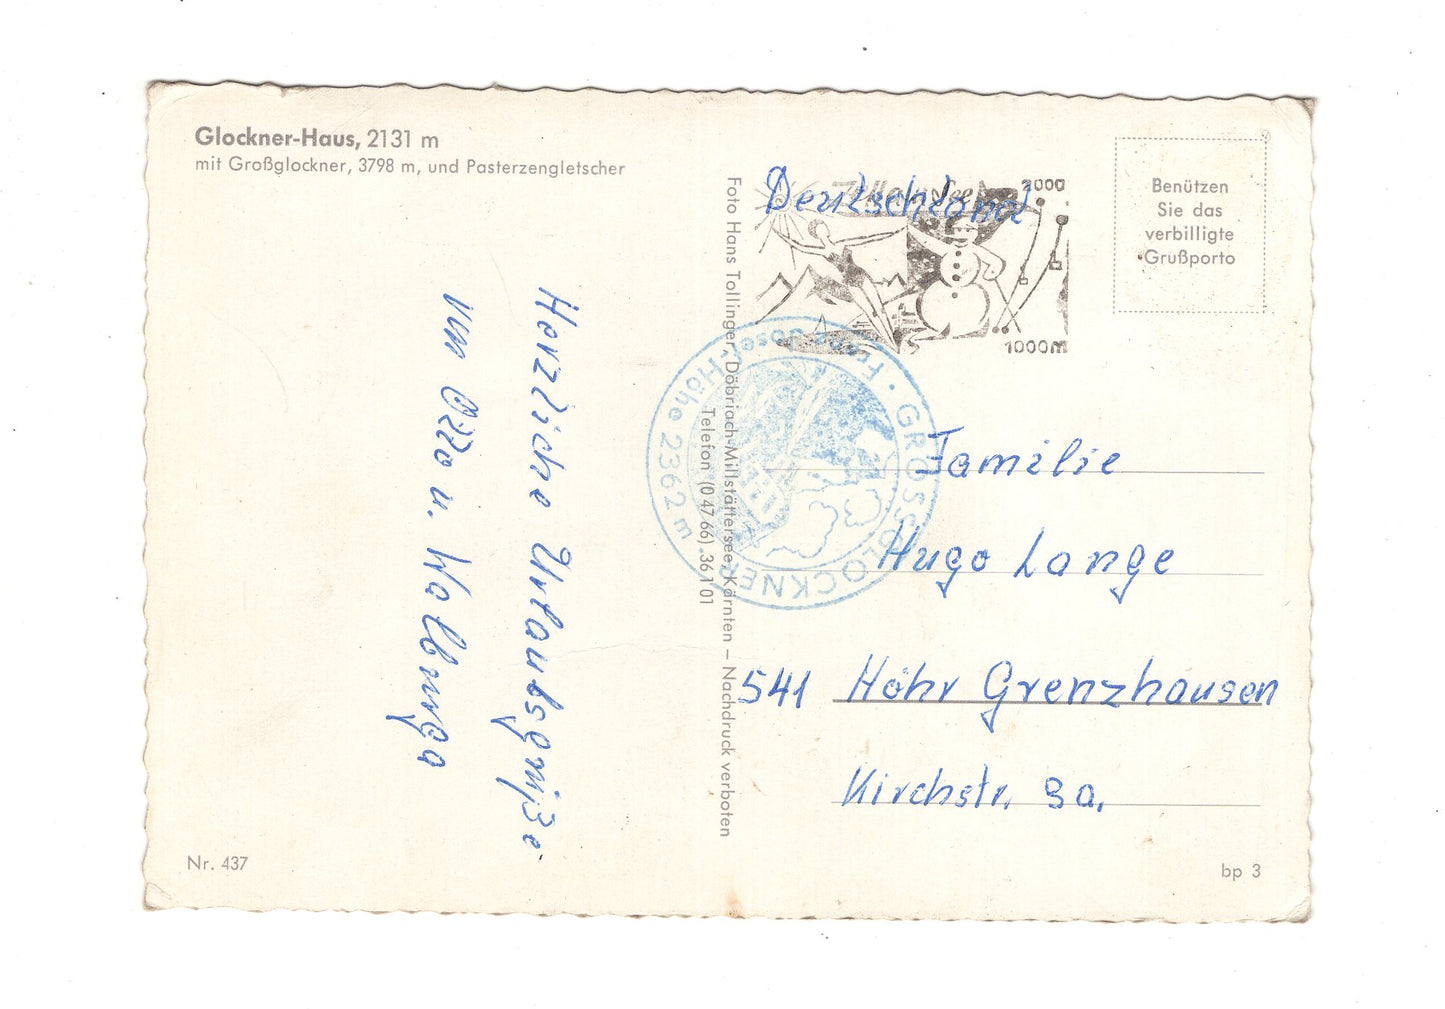 Glockner-Haus, 2131 m
mit Großglockner, 3798 m, und Pasterzengletscher
Herzliche Urlaubsgrüße
von Otto u. Walburga
Nr. 437
Foto Hans Tollinger, Döbriach-Millstättersee, Kärnten – Nachdruck verboten
Telefon (0 47 66) 36 1 01
Deutschland
Zell am See
2000
1000m
Benützen
Sie das
verbilligte
Grußporto
Franz Josef Höhe 2362 m
• GROSSGLOCKNER •
Familie
Hugo Lange
541 Höhr Grenzhausen
Kirchstr. 9a.
bp 3